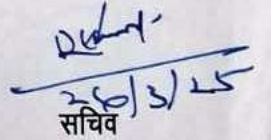 26/3/25
सचिव